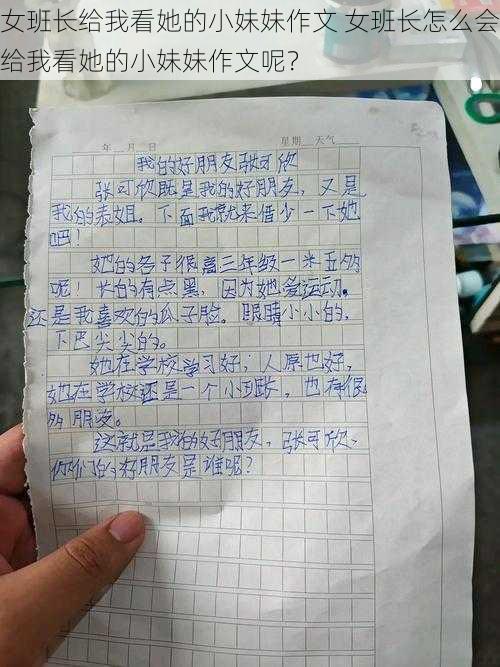 女班长给我看她的小妹妹作文 女班长怎么会
给我看她的小妹妹作文呢？
年 月 日 星期 天气
我的好朋友张可欣
张可欣既是我的好朋友，又是
我的表姐。下面我就来借少一下她
吧！
她的各子很高三年级一米五多
呢！长的有点黑，因为她爱运动。
还是我喜欢的瓜子脸。眼睛小小的，
下巴尖尖的。
她在学校学习好；人原也好，
她在学校还是一个小班长，也有很
多朋友。
这就是我的好朋友，张可欣、
你们的好朋友是谁呢？